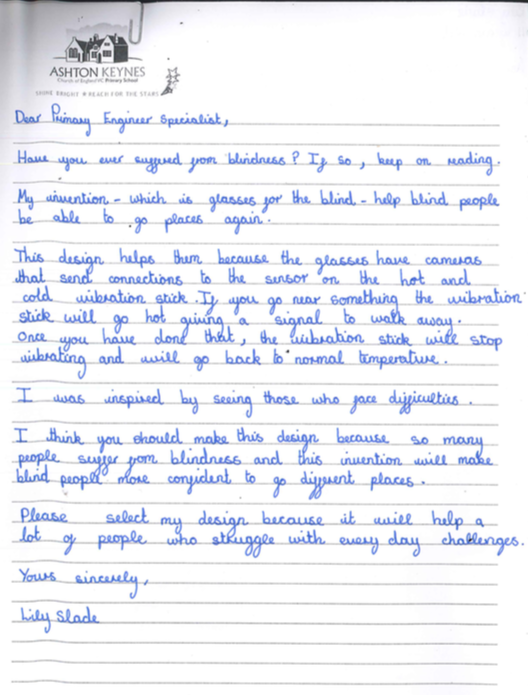 ASHTON KEYNES
Church of England VC Primary School
SHINE BRIGHT REACH FOR THE STARS
Dear Primary Engineer Specialist,
Have you ever suffered from blindness? If so, keep on reading.
My invention - which is glasses for the blind - help blind people
be able to go places again.
This design helps them because the glasses have cameras
that send connections to the sensor on the hot and
cold vibration stick. If you go near something the vibration
stick will go hot giving a signal to walk away.
Once you have done that, the vibration stick will stop
vibrating and will go back to normal temperature.
I was inspired by seeing those who face difficulties.
I think you should make this design because so many
people suffer from blindness and this invention will make
blind people more confident to go different places.
Please select my design because it will help a
lot of people who struggle with every day challenges.
Yours sincerely,
Lily Slade